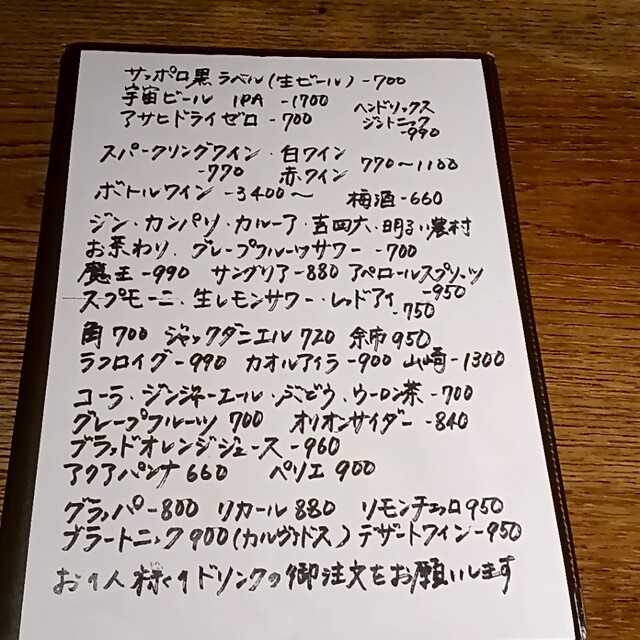 サッポロ黒ラベル(生ビール)-700
宇宙ビール IPA -1700 ヘンドリックス
アサヒドライゼロ -700 ジントニック
-990
スパークリングワイン・白ワイン
-770 赤ワイン 770〜1100
ボトルワイン -3400〜 梅酒-660
ジン・カンパリ・カルーア・吉四六・明るい農村
お茶わり、グレープフルーツサワー -700
魔王-990 サングリア-880 アペロールスプリッツ
-950
スプモーニ、生レモンサワー・レッドアイ
-750
角700 ジャックダニエル 720 余市950
ラフロイグ-990 カオルアイラ-900 山崎-1300
コーラ・ジンジャーエール・ぶどう、ウーロン茶-700
グレープフルーツ 700 オリオンサイダー-840
ブラッドオレンジジュース-960
アクアパンナ 660 ペリエ 900
グラッパ-800 リカール 880 リモンチェッロ950
ブラートニック900(カルヴァドス) デザートワイン-950
お1人様1ドリンクの御注文をお願いします